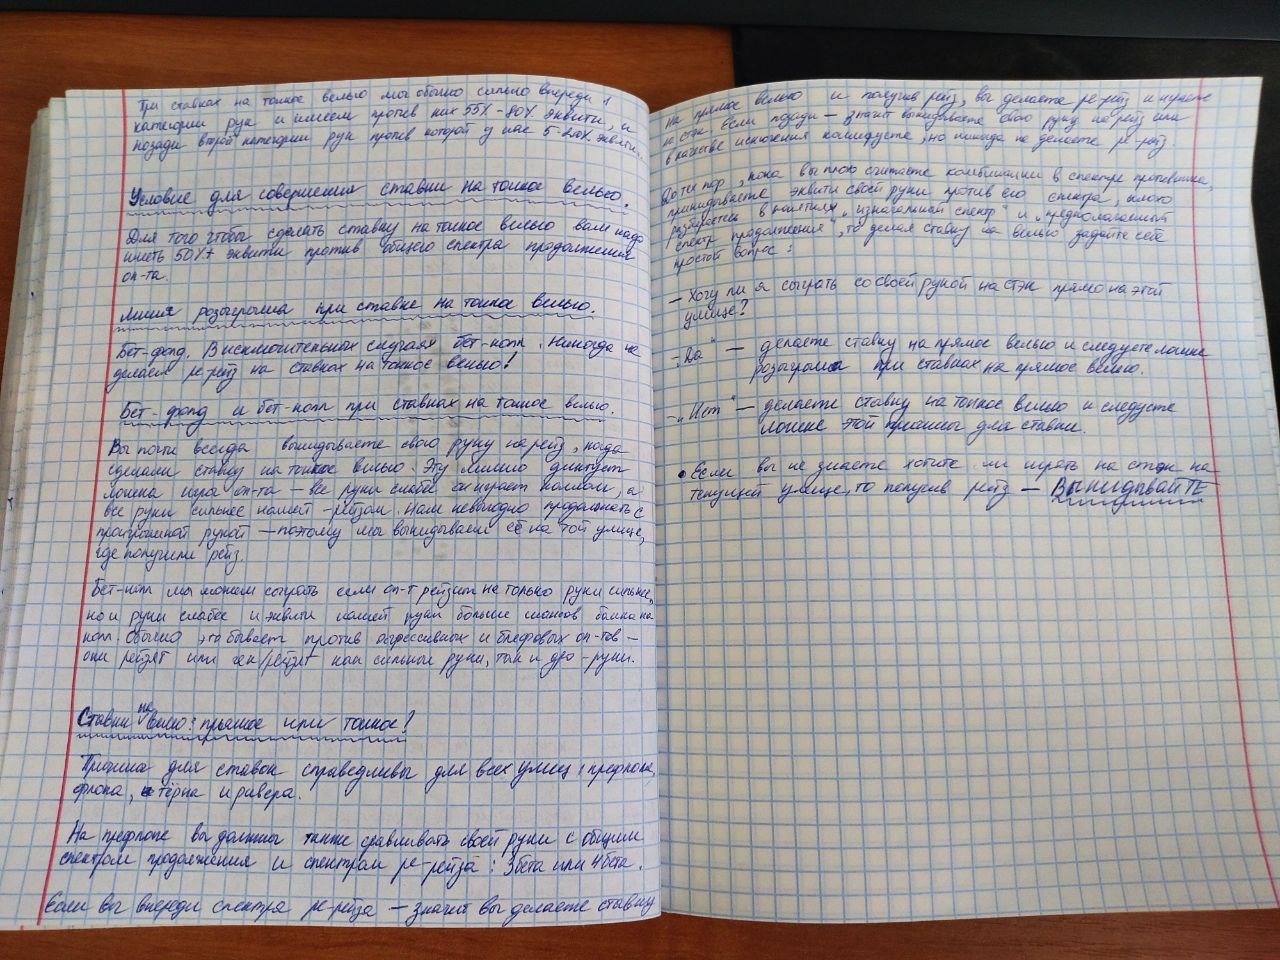 При ставках на тонкое велью мы обычно сильно впереди 1
категории рук и имеем против них 55%-80% эквити, и
позади второй категории рук против которой у нас 5-20% эквити.
Условие для совершения ставки на тонкое велью.
Для того чтобы сделать ставку на тонкое велью вам надо
иметь 50%+ эквити против общего спектра продолжения
оп-та.
Линия розыгрыша при ставке на тонкое велью.
Бет-фолд. В исключительных случаях бет-колл. Никогда не
делаем ре-рейз на ставках на тонкое велью!
Бет-фолд и бет-колл при ставках на тонкое велью.
Вы почти всегда выкидываете свою руку на рейз, когда
сделали ставку на тонкое велью. Эту линию диктует
логика игры оп-та – все руки слабее он играет коллом, а
все руки сильнее нашей – рейзом. Нам невыгодно продолжать с
проигрышной рукой – поэтому мы выкидываем её на той улице,
где получили рейз.
Бет-колл мы можем сыграть если оп-т рейзит не только руки сильнее,
но и руки слабее и эквити нашей руки больше шансов банка на
колл. Обычно это бывает против агрессивных и блефовых оп-тов –
они рейзят или чек/рейзят как сильные руки, так и дро-руки.
Ставки на велью: прямое или тонкое?
Причина для ставок справедливы для всех улиц: префлопа,
флопа, тёрна и ривера.
На префлопе вы должны также сравнивать своей руки с общим
спектром продолжения и спектром ре-рейза: 3бета или 4бета.
Если вы впереди спектра ре-рейза – значит вы делаете ставку
на прямое велью и получив рейз, вы делаете ре-рейз и играете
на стэк. Если позади – значит выкидываете свою руку на рейз или
в качестве исключения коллируете, но никогда не делаете ре-рейз.
До тех пор, пока вы плохо считаете комбинации в спектре противника,
прикидываете эквити своей руки против его спектра, плохо
разбираетесь в понятиях „изначальный спектр" и „предполагаемый
спектр продолжения", то делая ставку на велью задайте себе
простой вопрос:
– Хочу ли я сыграть со своей рукой на стэк прямо на этой
улице?
– „Да" – делаете ставку на прямое велью и следуете логике
розыгрыша при ставках на прямое велью.
– „Нет" – делаете ставку на тонкое велью и следуете
логике этой причины для ставки.
• Если вы не знаете хотите ли играть на стэк на
текущей улице, то получив рейз – ВЫКИДЫВАЙТЕ